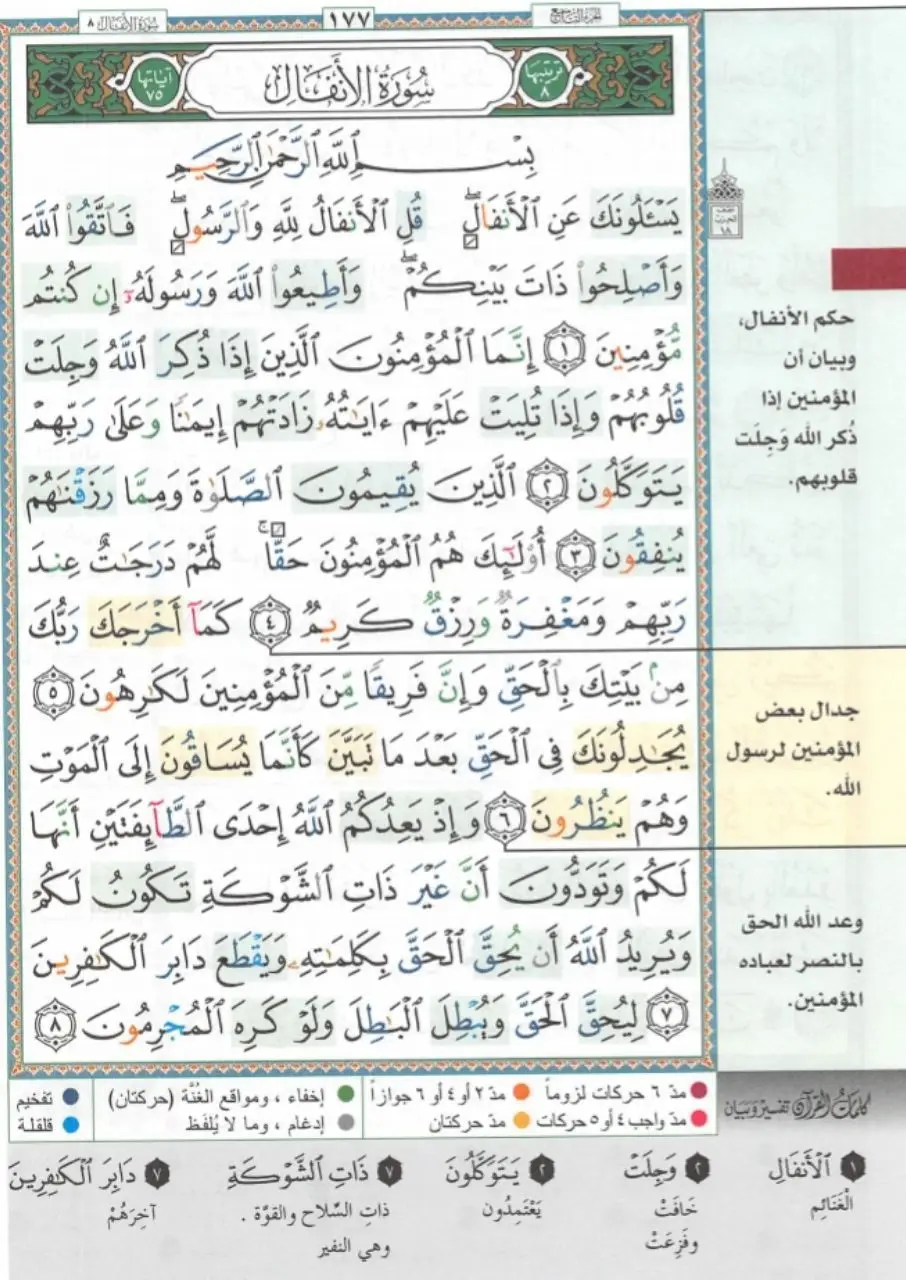 سُورَةُ الأَنفَال ٨
١٧٧
الجزء التاسع
ترتيبها ٨
سُورَةُ الأَنفَالِ
آياتها ٧٥
بِسْمِ ٱللَّهِ ٱلرَّحْمَٰنِ ٱلرَّحِيمِ
يَسْـَٔلُونَكَ عَنِ ٱلْأَنفَالِۖ قُلِ ٱلْأَنفَالُ لِلَّهِ وَٱلرَّسُولِۖ فَٱتَّقُوا۟ ٱللَّهَ
وَأَصْلِحُوا۟ ذَاتَ بَيْنِكُمْۖ وَأَطِيعُوا۟ ٱللَّهَ وَرَسُولَهُۥٓ إِن كُنتُم
مُّؤْمِنِينَ ١ إِنَّمَا ٱلْمُؤْمِنُونَ ٱلَّذِينَ إِذَا ذُكِرَ ٱللَّهُ وَجِلَتْ
قُلُوبُهُمْ وَإِذَا تُلِيَتْ عَلَيْهِمْ ءَايَٰتُهُۥ زَادَتْهُمْ إِيمَٰنًا وَعَلَىٰ رَبِّهِمْ
يَتَوَكَّلُونَ ٢ ٱلَّذِينَ يُقِيمُونَ ٱلصَّلَوٰةَ وَمِمَّا رَزَقْنَٰهُمْ
يُنفِقُونَ ٣ أُو۟لَٰٓئِكَ هُمُ ٱلْمُؤْمِنُونَ حَقًّاۚ لَّهُمْ دَرَجَٰتٌ عِندَ
رَبِّهِمْ وَمَغْفِرَةٌ وَرِزْقٌ كَرِيمٌ ٤ كَمَآ أَخْرَجَكَ رَبُّكَ
مِنۢ بَيْتِكَ بِٱلْحَقِّ وَإِنَّ فَرِيقًا مِّنَ ٱلْمُؤْمِنِينَ لَكَٰرِهُونَ ٥
يُجَٰدِلُونَكَ فِى ٱلْحَقِّ بَعْدَ مَا تَبَيَّنَ كَأَنَّمَا يُسَاقُونَ إِلَى ٱلْمَوْتِ
وَهُمْ يَنظُرُونَ ٦ وَإِذْ يَعِدُكُمُ ٱللَّهُ إِحْدَى ٱلطَّآئِفَتَيْنِ أَنَّهَا
لَكُمْ وَتَوَدُّونَ أَنَّ غَيْرَ ذَاتِ ٱلشَّوْكَةِ تَكُونُ لَكُمْ
وَيُرِيدُ ٱللَّهُ أَن يُحِقَّ ٱلْحَقَّ بِكَلِمَٰتِهِۦ وَيَقْطَعَ دَابِرَ ٱلْكَٰفِرِينَ
٧ لِيُحِقَّ ٱلْحَقَّ وَيُبْطِلَ ٱلْبَٰطِلَ وَلَوْ كَرِهَ ٱلْمُجْرِمُونَ ٨
حكم الأنفال،
وبيان أن
المؤمنين إذا
ذُكر الله وَجِلَت
قلوبهم.
جدال بعض
المؤمنين لرسول
الله.
وعد الله الحق
بالنصر لعباده
المؤمنين.
مدّ ٦ حركات لزوماً
مدّ ٢ أو ٤ أو ٦ جوازاً
إخفاء ، ومواقع الغُنَّة (حركتان)
تفخيم
مدّ واجب ٤ أو ٥ حركات
مدّ حركتان
إدغام ، وما لا يُلفَظ
قلقلة
كلمات القرآن تفسير وبيان
١ ٱلْأَنفَالِ
الْغَنَائِم
٢ وَجِلَتْ
خَافَتْ
وفَزِعَتْ
٢ يَتَوَكَّلُونَ
يَعْتَمِدُون
٧ ذَاتِ ٱلشَّوْكَةِ
ذاتِ السِّلاح والقوَّة .
وهي النفير
٧ دَابِرَ ٱلْكَٰفِرِينَ
آخِرَهُمْ